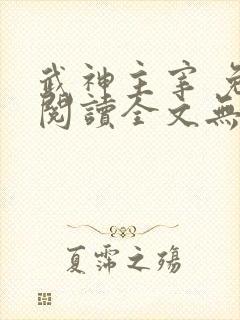 武神主宰 免
閱讀全文無
夏霈之殤